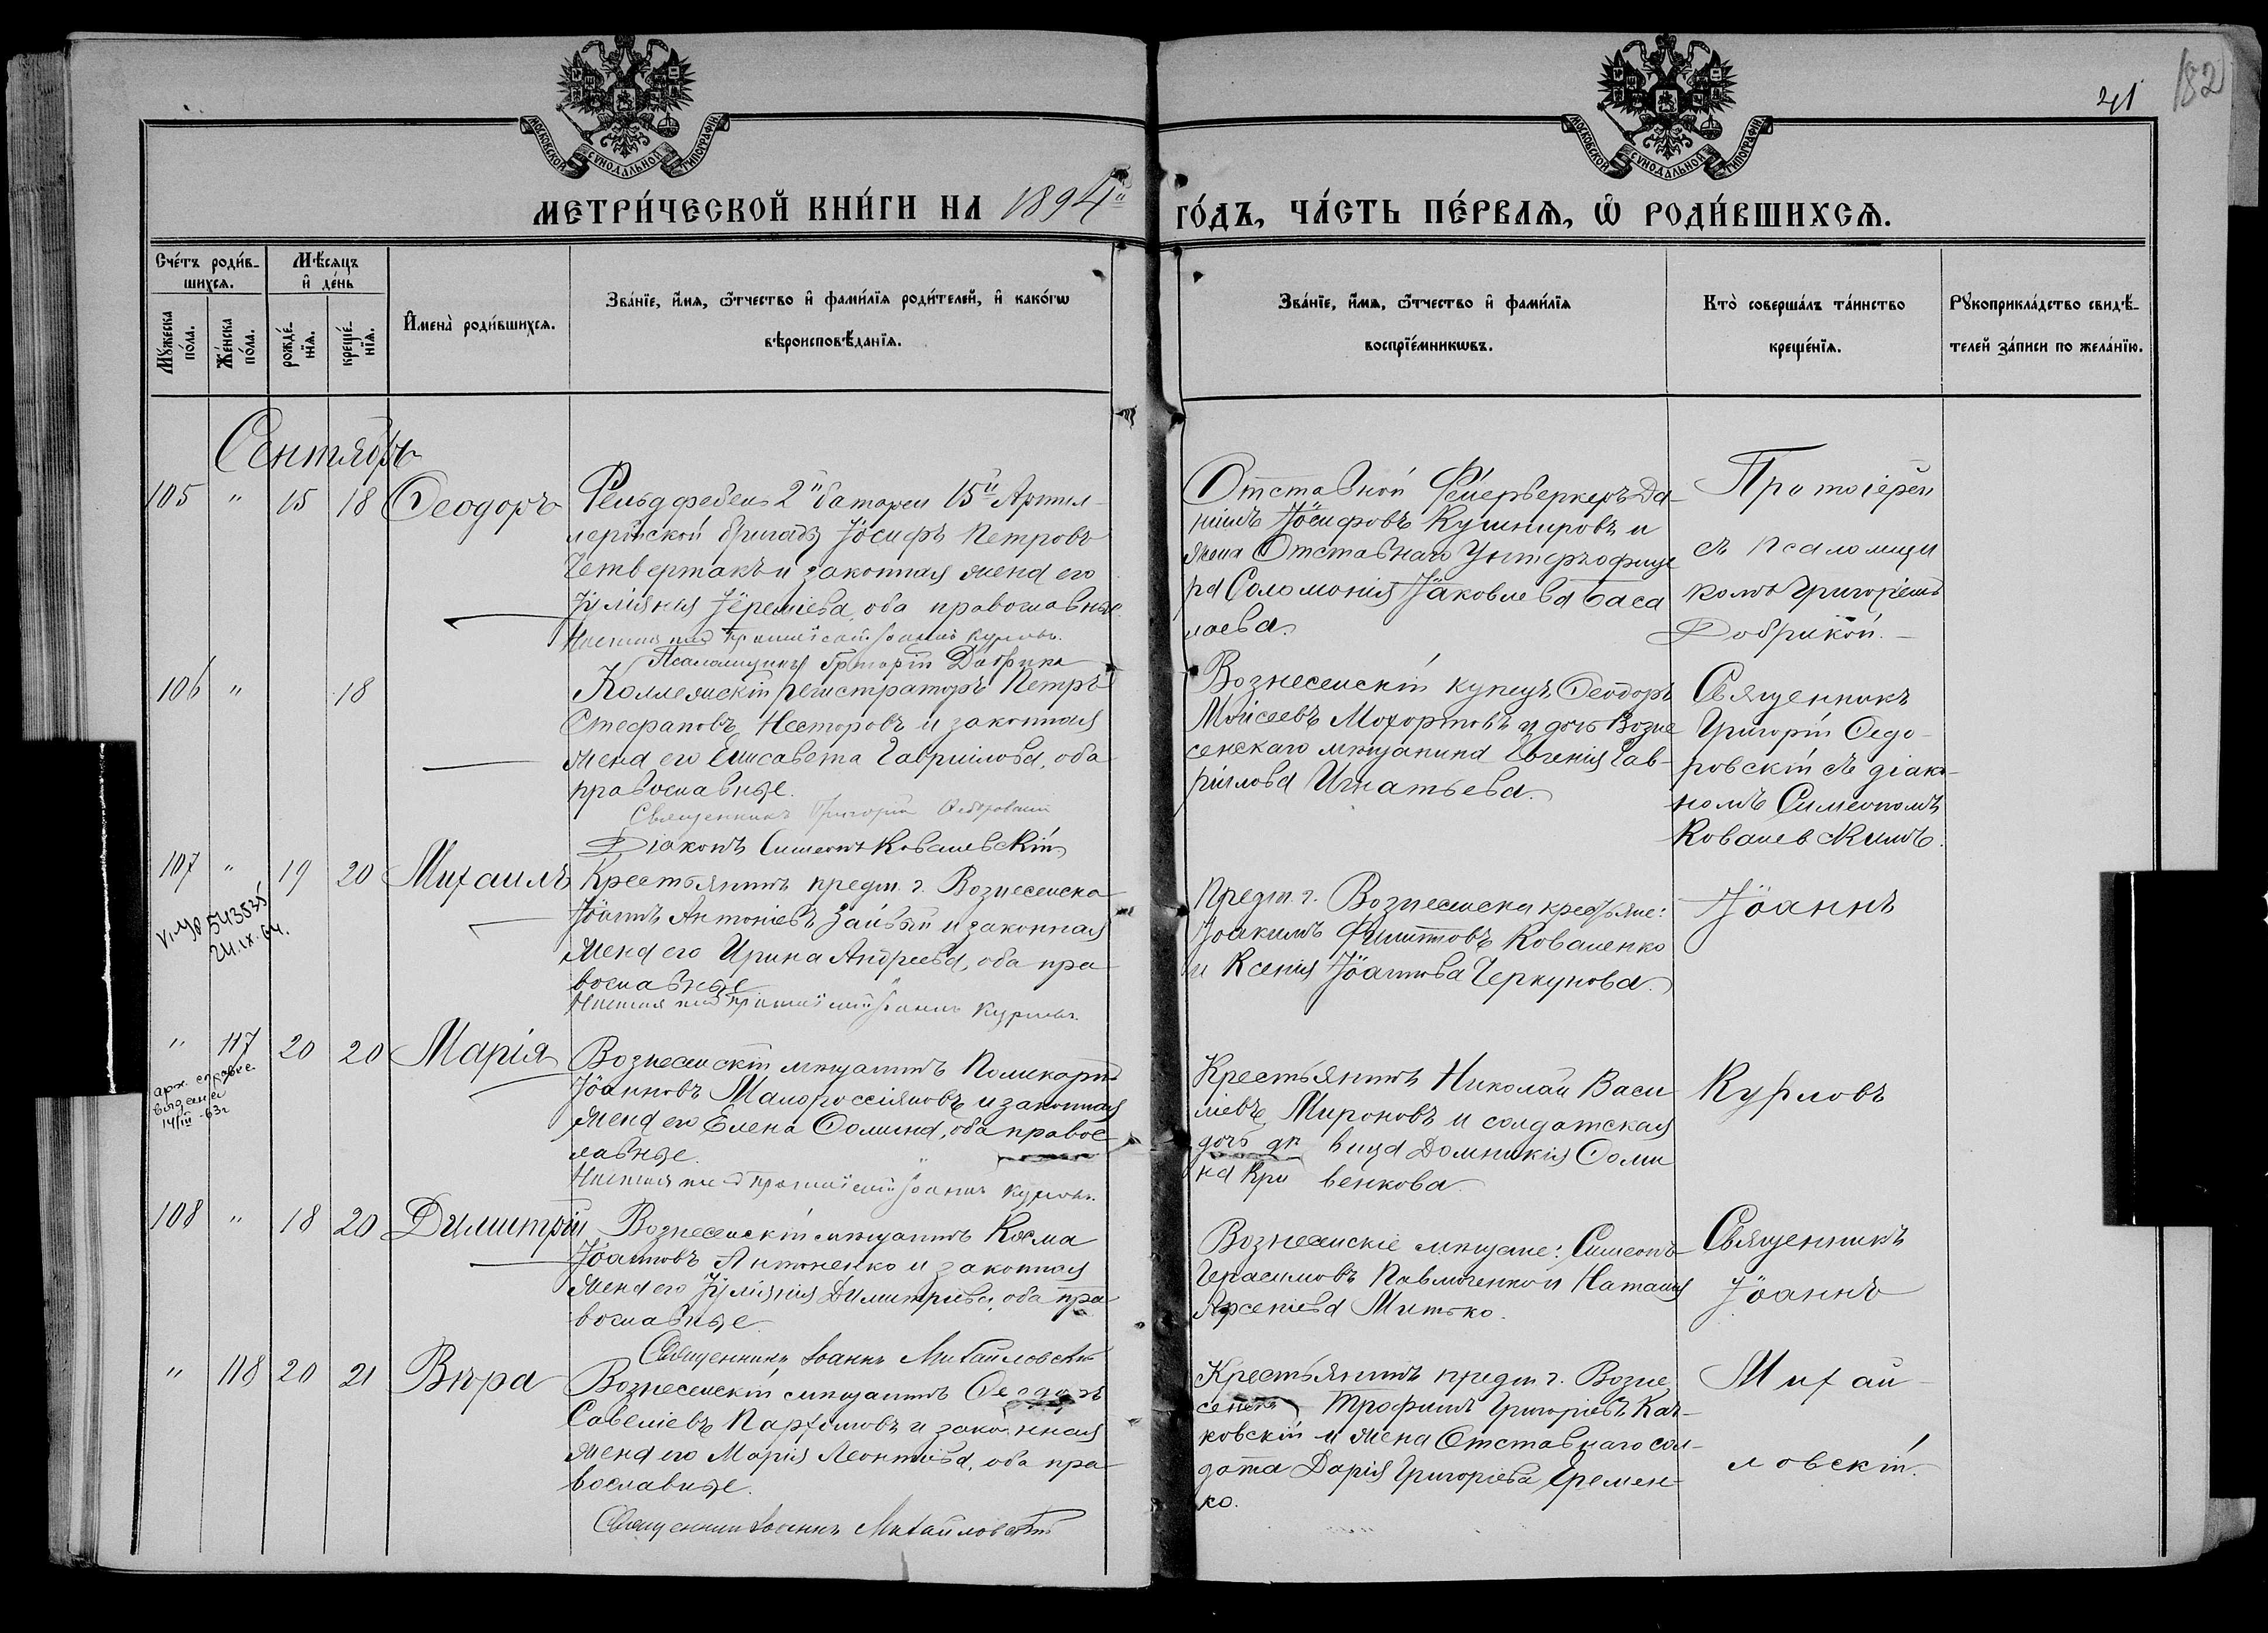 182
41
МОСКОВСКОЙ СѴНОДАЛЬНОЙ ТИПОГРАФІИ
МОСКОВСКОЙ СѴНОДАЛЬНОЙ ТИПОГРАФІИ
МЕТРИ́ЧЕСКОЙ КНИ́ГИ НА 1894й
ГО́ДЪ, ЧА́СТЬ ПЕ́РВАѦ, Ѿ РОДИ́ВШИХСѦ.
Сче́тъ роди́в-
шихсѧ.
Мꙋ́жеска по́ла.
Же́нска по́ла.
Мѣ́сѧцъ
и҆ де́нь
рожде́-
нїѧ.
креще́-
нїѧ.
И҆мена̀ роди́вшихсѧ.
Зва́нїе, и҆́мѧ, ѻ҆́тчество и҆ фами́лїѧ роди́телей, и҆ како́гѡ
вѣроисповѣ́данїѧ.
Зва́нїе, и҆́мѧ, ѻ҆́тчество и҆ фами́лїѧ
воспрїе́мникѡвъ.
Кто̀ соверша́лъ та́инство
креще́нїѧ.
Рꙋкоприкла́дство свидѣ́-
телей за́писи по жела́нїю.
Сентябрь
105 " 15 18 Ѳеодоръ
Фельдфебель 2й батареи 15й Артил-
лерійской бригады Іосифъ Петровъ
Четвертакъ и законная жена его
Іуліянія Іереміева, оба православные.
Іоаннъ Курловъ.
Псаломщикъ Григорій Добрика
Отставной Фейерверкеръ Да-
ніилъ Іосифовъ Кушнировъ и
жена Отставнаго Унтеръ-офице
ра Соломонія Іаковлева Баса
лаева.
Протоіерей
съ псаломщи
комъ Григоріемъ
Добрикой.
106 " 18
Коллежскій регистраторъ Петръ
Стефановъ Несторовъ и законная
жена его Елисавета Гавриилова, оба
православные.
Священникъ Григорій Ѳедоровскій
Діаконъ Симеонъ Ковалевскій
Вознесенскій купецъ Ѳеодоръ
Моисеевъ Мохортовъ и дочь Возне
сенскаго мѣщанина Евгенія Гав-
риилова Игнатьева.
Священникъ
Григорій Ѳедо-
ровскій съ діако-
номъ Симеономъ
Ковалевскимъ.
107 " 19 20 Михаилъ
543535
24.IX.64.
Крестьянинъ предм. г. Вознесенска
Іоаннъ Антоніевъ Зайвый и законная
жена его Ирина Андреева, оба пра
вославные
Іоаннъ Курловъ.
Предм. г. Вознесенска крестьяне:
Іоакимъ Филипповъ Коваленко
и Ксенія Іоаннова Черкунова.
Іоаннъ
" 117 20 20 Марія
арх. справка
выдана
14/III-63г
Вознесенскій мѣщанинъ Поликарпъ
Іоанновъ Малороссіяновъ и законная
жена его Елена Ѳомина, оба правос
лавные.
Іоаннъ Курловъ.
Крестьянинъ Николай Васи
ліевъ Мироновъ и солдатская
дочь дѣвица Домникія Ѳоми
на Кривенкова
Курловъ
108 " 18 20 Димитрій
Вознесенскій мѣщанинъ Косма
Іоанновъ Антоненко и законная
жена его Іуліянія Димитріева, оба пра
вославные.
Священникъ Іоаннъ Михайловскій
Вознесенскіе мѣщане: Симеонъ
Герасимовъ Павличенко и Наталія
Арсеніева Митько.
Священникъ
Іоаннъ
" 118 20 21 Вѣра
Вознесенскій мѣщанинъ Ѳеодоръ
Савеліевъ Парѳимовъ и законная
жена его Марія Леонтіева, оба пра
вославные.
Священникъ Іоаннъ Михайловскій
Крестьянинъ предм. г. Возне
сенска Трофимъ Григоріевъ Кач-
ковскій и жена Отставнаго сол-
дата Дарія Григоріева Еремен-
ко.
Михай-
ловскій.